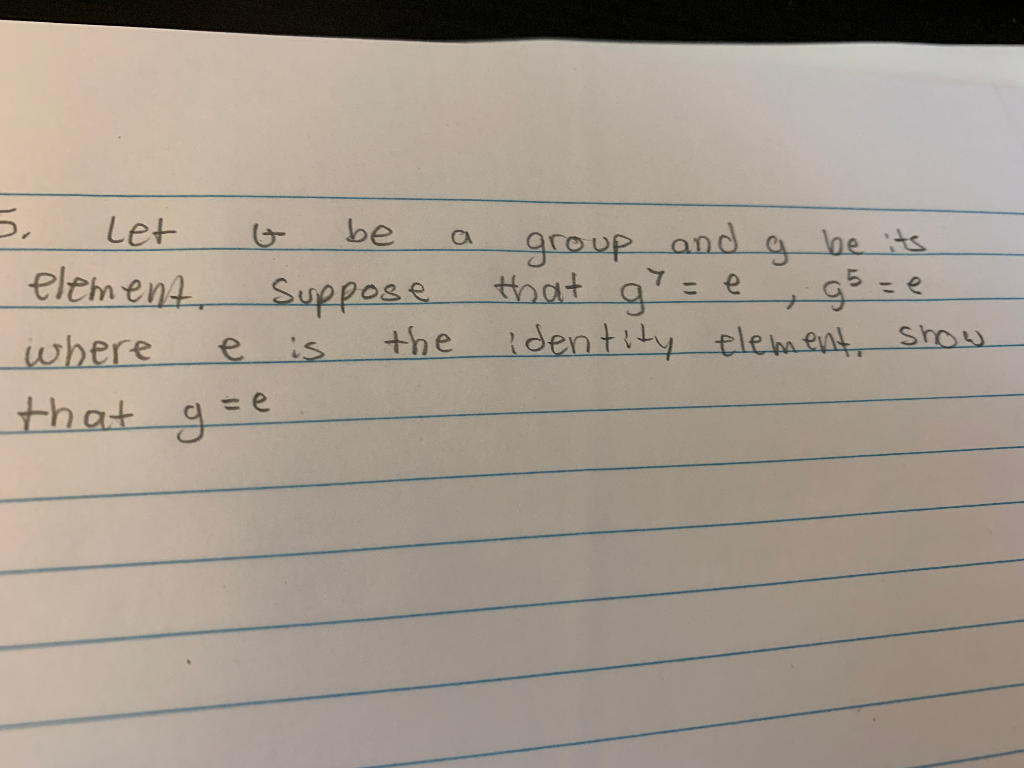 5. Let G be a group and g be its
element. Suppose that g⁷ = e , g⁵ = e
where e is the identity element. Show
that g = e